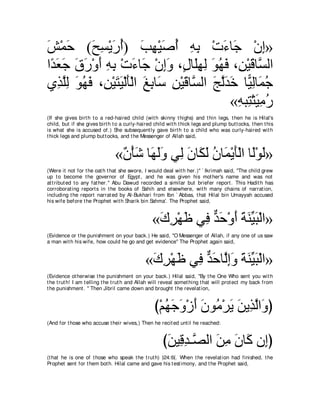 «إِنْ جَاءَتْ بِهِ أُصَيْهِبَ (أُرَيْسِحَ) حَمْشَ
السَّاقَيْنِ، فَهُوَ لِهِلَالٍ، وَإِنْ جَاءَتْ بِهِ أَوْرَقَ جَعْدًا
جُمَالِيًّا خَدَلَّجَ السَّاقَيْنِ سَابِغَ الْأَلْيَتَيْنِ، فَهُوَ لِلَّذِي
رُمِيَتْ بِهِ»
(If she gives birth to a red-haired child (with skinny thighs) and thin legs, then he is Hilal's
child, but if she gives birth to a curly-haired child with thick legs and plump buttocks, then this
is what she is accused of.) She subsequently gave birth to a child who was curly-haired with
thick legs and plump buttocks, and the Messenger of Allah said,
«لَوْلَا الْأَيْمَانُ لَكَانَ لِي وَلَهَا شَأْنٌ»
(Were it not for the oath that she swore, I would deal with her.)" `Ikrimah said, "The child grew
up to become the governor of Egypt, and he was given his mother's name and was not
attributed to any father." Abu Dawud recorded a similar but briefer report. This Hadith has
corroborating reports in the books of Sahih and elsewhere, with many chains of narration,
including the report narrated by Al-Bukhari from Ibn `Abbas, that Hilal bin Umayyah accused
his wife before the Prophet with Sharik bin Sahma'. The Prophet said,
«الْبَيِّنَةَ أَوْ حَدٌّ فِي ظَهْرِكَ»
(Evidence or the punishment on your back.) He said, "O Messenger of Allah, if any one of us saw
a man with his wife, how could he go and get evidence" The Prophet again said,
«الْبَيِّنَةَ وَإِلَّا حَدٌّ فِي ظَهْرِكَ»
(Evidence otherwise the punishment on your back.) Hilal said, "By the One Who sent you with
the truth! I am telling the truth and Allah will reveal something that will protect my back from
the punishment. " Then Jibril came down and brought the revelation,
(وَالَّذِينَ يَرْمُونَ أَزْوَجَهُمْ)
(And for those who accuse their wives,) Then he recited until he reached:
(إِن كَانَ مِنَ الصَّـدِقِينَ)
(that he is one of those who speak the truth) [24:6]. When the revelation had finished, the
Prophet sent for them both. Hilal came and gave his testimony, and the Prophet said,